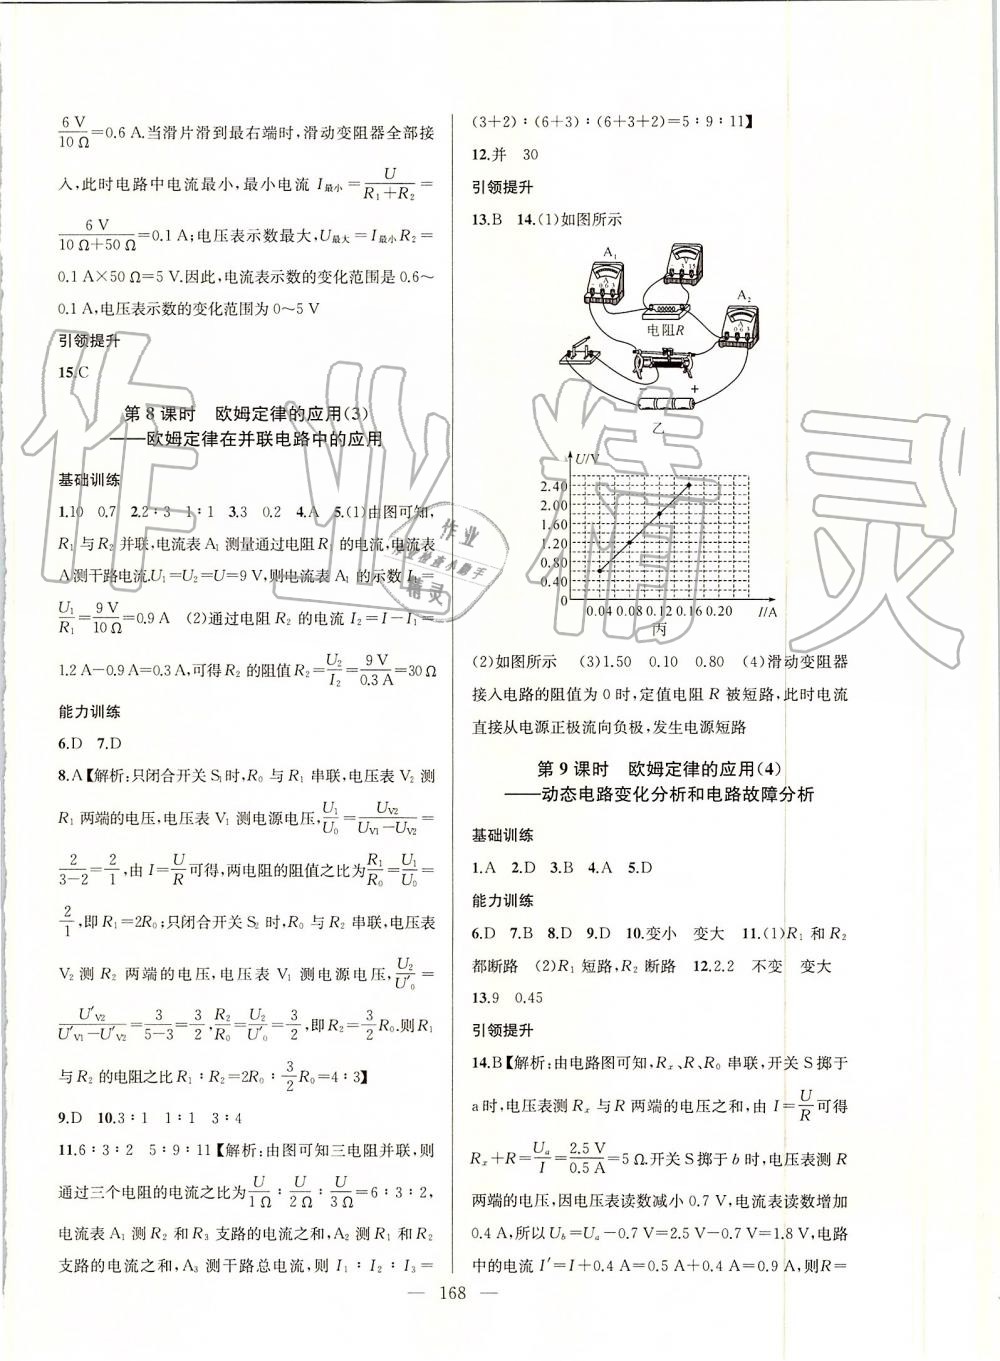 6 V/10 Ω=0.6 A.当滑片滑到最右端时,滑动变阻器全部接
入,此时电路中电流最小,最小电流 I最小=U/(R₁+R₂)=
6 V/(10 Ω+50 Ω)=0.1 A;电压表示数最大,U最大=I最小R₂=
0.1 A×50 Ω=5 V.因此,电流表示数的变化范围是 0.6～
0.1 A,电压表示数的变化范围为 0～5 V
引领提升
15.C
第 8 课时　欧姆定律的应用(3)
——欧姆定律在并联电路中的应用
基础训练
1.10　0.7　2.2∶3　1∶1　3.3　0.2　4.A　5.(1)由图可知,
R₁ 与 R₂ 并联,电流表 A₁ 测量通过电阻 R₁ 的电流,电流表
A 测干路电流.U₁=U₂=U=9 V,则电流表 A₁ 的示数 I₁=
U₁/R₁=9 V/10 Ω=0.9 A　(2)通过电阻 R₂ 的电流 I₂=I-I₁=
1.2 A-0.9 A=0.3 A,可得 R₂ 的阻值 R₂=U₂/I₂=9 V/0.3 A=30 Ω
能力训练
6.D　7.D
8.A【解析:只闭合开关 S₁ 时,R₀ 与 R₁ 串联,电压表 V₂ 测
R₁ 两端的电压,电压表 V₁ 测电源电压,U₁/U₀=UV2/(UV1-UV2)=
2/(3-2)=2/1,由 I=U/R 可得,两电阻的阻值之比为 R₁/R₀=U₁/U₀=
2/1,即 R₁=2R₀;只闭合开关 S₂ 时,R₀ 与 R₂ 串联,电压表
V₂ 测 R₂ 两端的电压,电压表 V₁ 测电源电压,U₂/U′₀=
U′V2/(U′V1-U′V2)=3/(5-3)=3/2,R₂/R₀=U₂/U′₀=3/2,即 R₂=3/2R₀.则 R₁
与 R₂ 的电阻之比 R₁∶R₂=2R₀∶3/2R₀=4∶3】
9.D　10.3∶1　1∶1　3∶4
11.6∶3∶2　5∶9∶11【解析:由图可知三电阻并联,则
通过三个电阻的电流之比为U/1 Ω∶U/2 Ω∶U/3 Ω=6∶3∶2,
电流表 A₁ 测 R₂ 和 R₃ 支路的电流之和,A₂ 测 R₁ 和 R₂
支路的电流之和,A₃ 测干路总电流,则 I₁∶I₂∶I₃=
(3+2)∶(6+3)∶(6+3+2)=5∶9∶11】
12.并　30
引领提升
13.B　14.(1)如图所示
A₁
A₂
电阻R
- +
乙
U/V
2.40
2.00
1.60
1.20
0.80
0.40
0
0.04 0.08 0.12 0.16 0.20　I/A
丙
(2)如图所示　(3)1.50　0.10　0.80　(4)滑动变阻器
接入电路的阻值为 0 时,定值电阻 R 被短路,此时电流
直接从电源正极流向负极,发生电源短路
第 9 课时　欧姆定律的应用(4)
——动态电路变化分析和电路故障分析
基础训练
1.A　2.D　3.B　4.A　5.D
能力训练
6.D　7.B　8.D　9.D　10.变小　变大　11.(1)R₁ 和 R₂
都断路　(2)R₁ 短路,R₂ 断路　12.2.2　不变　变大
13.9　0.45
引领提升
14.B【解析:由电路图可知,Rₓ、R、R₀ 串联,开关 S 掷于
a 时,电压表测 Rₓ 与 R 两端的电压之和,由 I=U/R可得
Rₓ+R=Uₐ/I=2.5 V/0.5 A=5 Ω.开关 S 掷于 b 时,电压表测 R
两端的电压,因电压表读数减小 0.7 V,电流表读数增加
0.4 A,所以 U_b=Uₐ-0.7 V=2.5 V-0.7 V=1.8 V,电路
中的电流 I′=I+0.4 A=0.5 A+0.4 A=0.9 A,则 R=
— 168 —
作业精灵
作业
精灵